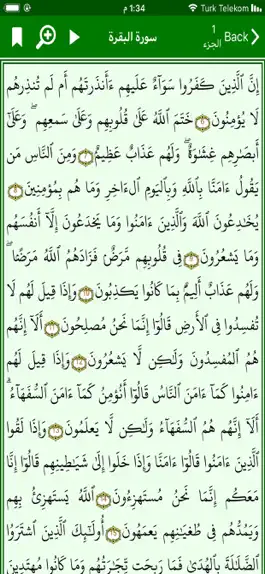 1:34 م
Turk Telekom
سورة البقرة
1
الجزء
Back
إِنَّ ٱلَّذِينَ كَفَرُوا۟ سَوَآءٌ عَلَيْهِمْ ءَأَنذَرْتَهُمْ أَمْ لَمْ تُنذِرْهُمْ
لَا يُؤْمِنُونَ ٦ خَتَمَ ٱللَّهُ عَلَىٰ قُلُوبِهِمْ وَعَلَىٰ سَمْعِهِمْ ۖ وَعَلَىٰٓ
أَبْصَٰرِهِمْ غِشَٰوَةٌ ۖ وَلَهُمْ عَذَابٌ عَظِيمٌ ٧ وَمِنَ ٱلنَّاسِ مَن
يَقُولُ ءَامَنَّا بِٱللَّهِ وَبِٱلْيَوْمِ ٱلْءَاخِرِ وَمَا هُم بِمُؤْمِنِينَ ٨
يُخَٰدِعُونَ ٱللَّهَ وَٱلَّذِينَ ءَامَنُوا۟ وَمَا يَخْدَعُونَ إِلَّآ أَنفُسَهُمْ
وَمَا يَشْعُرُونَ ٩ فِى قُلُوبِهِم مَّرَضٌ فَزَادَهُمُ ٱللَّهُ مَرَضًا ۖ
وَلَهُمْ عَذَابٌ أَلِيمٌۢ بِمَا كَانُوا۟ يَكْذِبُونَ ١٠ وَإِذَا قِيلَ لَهُمْ لَا
تُفْسِدُوا۟ فِى ٱلْأَرْضِ قَالُوٓا۟ إِنَّمَا نَحْنُ مُصْلِحُونَ ١١ أَلَآ إِنَّهُمْ
هُمُ ٱلْمُفْسِدُونَ وَلَٰكِن لَّا يَشْعُرُونَ ١٢ وَإِذَا قِيلَ لَهُمْ
ءَامِنُوا۟ كَمَآ ءَامَنَ ٱلنَّاسُ قَالُوٓا۟ أَنُؤْمِنُ كَمَآ ءَامَنَ ٱلسُّفَهَآءُ ۗ
أَلَآ إِنَّهُمْ هُمُ ٱلسُّفَهَآءُ وَلَٰكِن لَّا يَعْلَمُونَ ١٣ وَإِذَا لَقُوا۟
ٱلَّذِينَ ءَامَنُوا۟ قَالُوٓا۟ ءَامَنَّا وَإِذَا خَلَوْا۟ إِلَىٰ شَيَٰطِينِهِمْ قَالُوٓا۟ إِنَّا
مَعَكُمْ إِنَّمَا نَحْنُ مُسْتَهْزِءُونَ ١٤ ٱللَّهُ يَسْتَهْزِئُ بِهِمْ
وَيَمُدُّهُمْ فِى طُغْيَٰنِهِمْ يَعْمَهُونَ ١٥ أُو۟لَٰٓئِكَ ٱلَّذِينَ ٱشْتَرَوُا۟
ٱلضَّلَٰلَةَ بِٱلْهُدَىٰ فَمَا رَبِحَت تِّجَٰرَتُهُمْ وَمَا كَانُوا۟ مُهْتَدِينَ